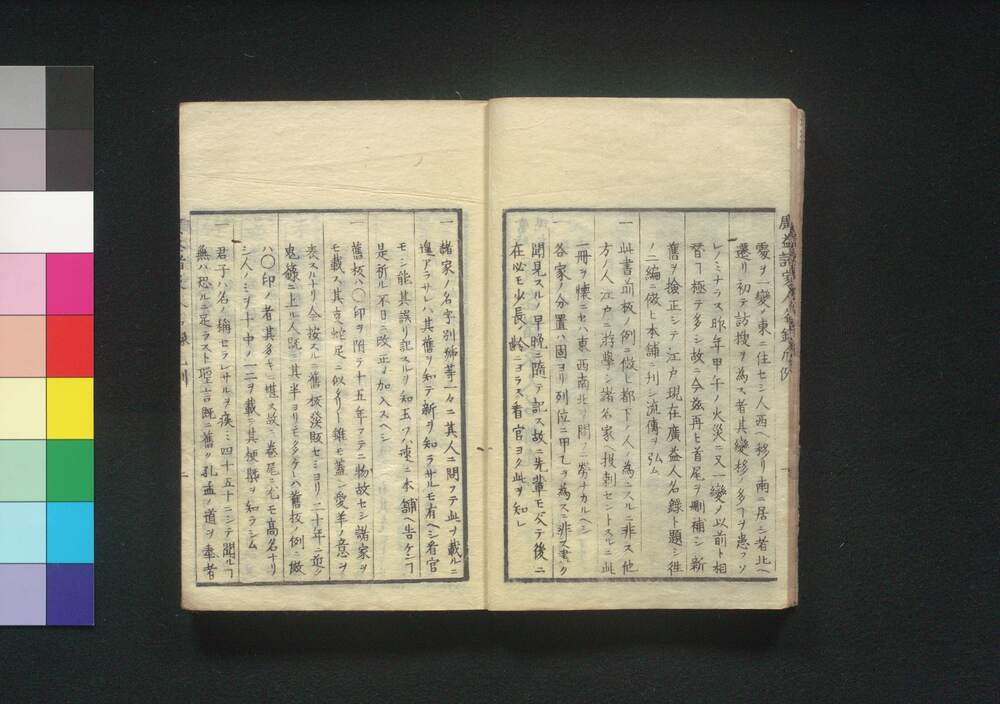 廣益諸家人名録凡例
變ヲ一變ノ東ニ住セシ人西ヘ移リ南ニ居シ者北ヘ
遷リ初テ訪搜ヲ為ス者其變移ノ多キヲ患フソ
レノミナラス昨年甲午ノ火災ニ又一變ノ以前ト相
替ヿ極テ多シ故ニ今茲再ヒ首尾ヲ刪補シ新
舊ヲ撿正シテ江戸現在廣益人名録ト題シ徃
ノ二編ニ倣ヒ本舗ニ刋シ流傳ヲ弘ム
一 此書前板ノ例ニ倣ヒ都下ノ人ノ為ニスルニ非ス他
方ノ人江戸ニ游學シ諸名家ヘ投刺セントスルニ此
一冊ヲ懷ニセハ東西南北ヲ問ノ勞ナカルヘシ
一 各家ノ分置ハ固ヨリ列位ニ甲乙ヲ為スニ非ス
聞見スルノ早晩ニ隨テ記ス故ニ先輩モ反テ後ニ
在必モ少長ノ齡ニヨラス看官ヨク此ヲ知レ
一 諸家ノ名字別號等一々ニ其人ニ問フテ此ヲ載ルニ
遑アラサレハ其舊ヲ知テ新ヲ知ラサルモ有ヘシ看官
モシ能其誤リ記スルヲ知玉ハヽ速ニ本舗ヘ告ケンヿ
是祈ル不日ニ改正ノ加入スヘシ
一 舊板ハ〇印ヲ附テ十五年フテニ物故セシ諸家ヲ
モ載ス其支蛇足ニ似タリト雖モ蓋シ愛羊ノ意ヲ
表スルナリ今按スルニ舊板發販セシヨリ二十年ニ近ク
鬼籙ニ上ル人既ニ其半ヨリモ多クケレハ舊板ノ例ニ倣
ハ〇印ノ者其多キニ堪ス故ニ卷尾ニ尤モ高名ナリ
シ人ノミヲ十中ノ一二ヲ載ニ其梗槩ヲ知ラシム
一 君子ハ名ノ稱セラレサルヲ疾ミ四十五十ニシテ聞ルヿ
無ハ恐ルニ足ラスト聖言既ニ舊ク孔孟ノ道ヲ奉者